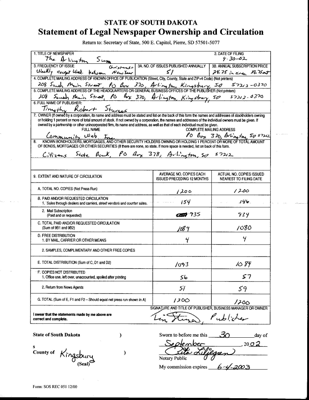 STATE OF SOUTH DAKOTA
Statement of Legal Newspaper Ownership and Circulation
Return to: Secretary of State, 500 E. Capitol, Pierre, SD 57501-5077
1. TITLE OF NEWSPAPER
2. DATE OF FILING
The Arlington Sun
9-30-02
3. FREQUENCY OF ISSUE
3A. NO. OF ISSUES PUBLISHED ANNUALLY
3B. ANNUAL SUBSCRIPTION PRICE
Weekly except Week between
51
4. COMPLETE MAILING ADDRESS OF KNOWN OFFICE OF PUBLICATION (Street, City, County, State and ZIP+4 Code) (Not printers)
208 South Main Street PO Box 370, Arlington, Kingsbury SD 57212-0370
5. COMPLETE MAILING ADDRESS OF THE HEADQUARTERS OR GENERAL BUSINESS OFFICES OF THE PUBLISHER (Not printers)
208 South Main Street, PO Box 370, Arlington Kingsbury, SD 57212-0370
6. FULL NAME OF PUBLISHER:
Timothy Robert
7. OWNER (If owned by a corporation, its name and address must be stated and list on the back of this form the names and addresses of stockholders owning
or holding 1 percent or more of total amount of stock. If not owned by a corporation, the names and addresses of the individual owners must be given. If
owned by a partnership or other unincorporated firm, its name and address, as well as that of each individual must be given.
FULL NAME
COMPLETE MAILING ADDRESS
Community Web Inc
PO Box 370, Arlington SD 57212
8. KNOWN BONDHOLDERS, MORTGAGEES, AND OTHER SECURITY HOLDERS OWNING OR HOLDING 1 PERCENT OR MORE OF TOTAL AMOUNT
OF BONDS, MORTGAGES OR OTHER SECURITIES (If there are none, so state. If more space is needed, list on back of this form.
Citizens State Bank, PO Box 378, Arlington, SD 57212
9. EXTENT AND NATURE OF CIRCULATION
AVERAGE NO. COPIES EACH
ISSUES PRECEDING 12 MONTHS
ACTUAL NO. COPIES ISSUED
NEAREST TO FILING DATE
A. TOTAL NO. COPIES (Net Press Run)
1200
1200
B. PAID AND/OR REQUESTED CIRCULATION
1. Sales through dealers and carriers, street vendors and counter sales.
154
166
2. Mail Subscription
(Paid and or requested)
935
914
C. TOTAL PAID AND/OR REQUESTED CIRCULATION
(Sum of 9B1 and 9B2)
1089
1080
D. FREE DISTRIBUTION
1. BY MAIL, CARRIER OR OTHER MEANS
4
4
2. SAMPLES, COMPLIMENTARY AND OTHER FREE COPIES
E. TOTAL DISTRIBUTION (Sum of C, D1 and D2)
1093
1084
F. COPIES NOT DISTRIBUTED
1. Office use, left over, unaccounted, spoiled after printing
56
57
2. Return from News Agents
51
59
G. TOTAL (Sum of E, F1 and F2 - Should equal net press run shown in A)
1200
1200
I swear that the statements made by me above are
correct and complete.
SIGNATURE AND TITLE OF PUBLISHER, BUSINESS MANAGER OR OWNER
Publisher
State of South Dakota )
Sworn to before me this 30 day of
September, 2002
County of Kingsbury )
(Seal)
Notary Public
My commission expires 6-4-2003
Form: SOS REC 051 12/00